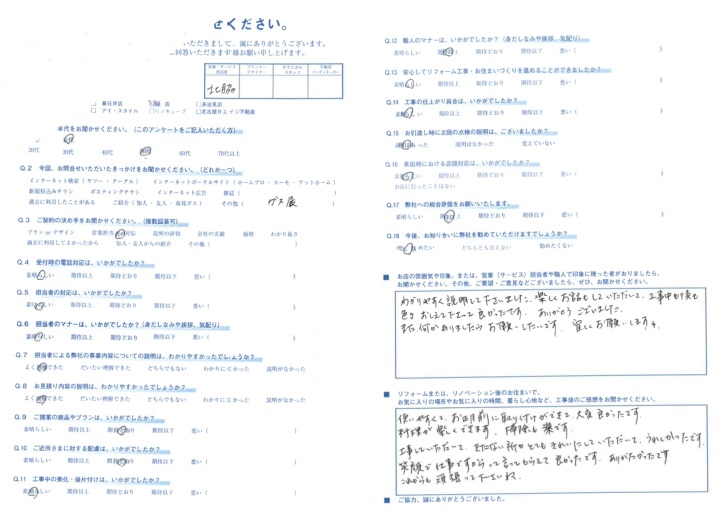 せください。
いただきまして、誠にありがとうございます。
回答いただきます様お願い申し上げます。
営業・サービス 担当者
プランナー デザイナー
スタッフ
不動産
北脇
春日井店
店
多治見店
アイ・スタイル
リノキューブ
名古屋Rエイジ不動産
年代をお聞かせください。（このアンケートをご記入いただく方）
20代 30代 40代 50代 60代 70代以上
Q.2 今回、お問合せいただいたきっかけをお聞かせください。（どれか一つ）
インターネット検索（ヤフー・グーグル） インターネットポータルサイト（ホームプロ・スーモ・アットホーム）
新聞折込みチラシ ポスティングチラシ インターネット広告 雑誌（
過去に利用したことがある ご紹介（知人・友人・東邦ガス） その他（ ガス展
Q.3 ご契約の決め手をお聞かせください。（複数回答可）
プラン or デザイン 営業担当の対応 近所の評判 会社の実績 価格 わかり易さ
過去に利用してよかったから 知人・友人からの紹介 その他（ ）
Q.4 受付時の電話対応は、いかがでしたか？
素晴らしい 期待以上 期待どおり 期待以下 悪い（ ）
Q.5 担当者の対応は、いかがでしたか？
素晴らしい 期待以上 期待どおり 期待以下 悪い（ ）
Q.6 担当者のマナーは、いかがでしたか？（身だしなみや挨拶、気配り）
素晴らしい 期待以上 期待どおり 期待以下 悪い（ ）
Q.7 担当者による弊社の事業内容についての説明は、わかりやすかったでしょうか？
よく理解できた だいたい理解できた どちらでもない わかりにくかった 説明がなかった
Q.8 お見積り内容の説明は、わかりやすかったでしょうか？
よく理解できた だいたい理解できた どちらでもない わかりにくかった 説明がなかった
Q.9 ご提案の商品やプランは、いかがでしたか？
素晴らしい 期待以上 期待どおり 期待以下 悪い（ ）
Q.10 ご近所さまに対する配慮は、いかがでしたか？
素晴らしい 期待以上 期待どおり 期待以下 悪い（ ）
Q.11 工事中の美化・後片付けは、いかがでしたか？
素晴らしい 期待以上 期待どおり 期待以下 悪い（ ）
Q.12 職人のマナーは、いかがでしたか？（身だしなみや挨拶、気配り）
素晴らしい 期待以上 期待どおり 期待以下 悪い（ ）
Q.13 安心してリフォーム工事・お住まいづくりを進めることができましたか？
素晴らしい 期待以上 期待どおり 期待以下 悪い（ ）
Q.14 工事の仕上がり具合は、いかがでしたか？
素晴らしい 期待以上 期待どおり 期待以下 悪い（ ）
Q.15 お引渡し時に次回の点検の説明は、ございましたか？
説明はあった 説明はなかった 覚えていない
Q.16 来店時における店頭対応は、いかがでしたか？
素晴らしい 期待以上 期待どおり 期待以下 悪い（ ）
お店に行ったことはない
Q.17 弊社への総合評価をお願いします。
素晴らしい 期待以上 期待どおり 期待以下 悪い（ ）
Q.18 今後、お知り合いに弊社を勧めていただけますでしょうか？
勧めたい どちらとも言えない 勧めたくない
■ お店の雰囲気や印象、または、営業（サービス）担当者や職人で印象に残った者がおりましたら、
お聞かせください。その他、ご要望・ご意見などございましたら、ぜひ、お聞かせください。
わかりやすく説明して下さいました。楽しくお話もしていただいて、工事中も
色々おしえて下さって良かったです。ありがとうございました。
また何かありましたらお願いしたいです。宜しくお願いします。
■ リフォームまたは、リノベーション後のお住まいで、
お気に入りの場所やお気に入りの時間、暮らし心地など、工事後のご感想をお聞かせください。
使いやすくて、お正月前に取り付けができて、大変良かったです。
料理が楽しくできます。掃除も楽です。
工事していただいて、きたない所もとてもきれいにしていただいて、うれしかったです。
笑顔で仕事ですからって言ってもらえて良かったです。ありがたかったです
これからも頑張って下さいね。
■ ご協力、誠にありがとうございました。